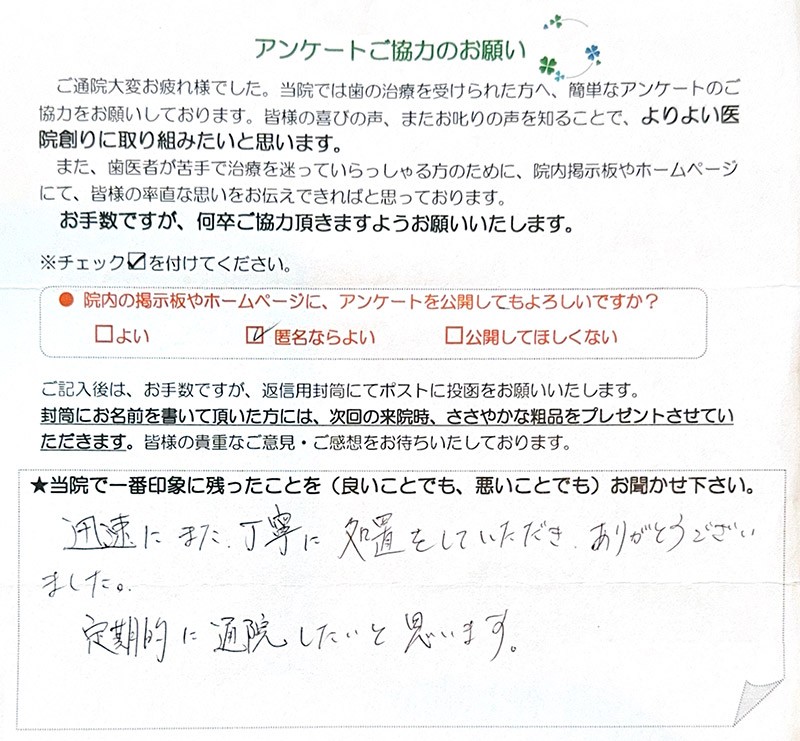 アンケートご協力のお願い
ご通院大変お疲れ様でした。当院では歯の治療を受けられた方へ、簡単なアンケートのご
協力をお願いしております。皆様の喜びの声、またお叱りの声を知ることで、よりよい医
院創りに取り組みたいと思います。
また、歯医者が苦手で治療を迷っていらっしゃる方のために、院内掲示板やホームページ
にて、皆様の率直な思いをお伝えできればと思っております。
お手数ですが、何卒ご協力頂きますようお願いいたします。
※チェック☑を付けてください。
● 院内の掲示板やホームページに、アンケートを公開してもよろしいですか？
□よい ☑匿名ならよい □公開してほしくない
ご記入後は、お手数ですが、返信用封筒にてポストに投函をお願いいたします。
封筒にお名前を書いて頂いた方には、次回の来院時、ささやかな粗品をプレゼントさせてい
ただきます。皆様の貴重なご意見・ご感想をお待ちいたしております。
★当院で一番印象に残ったことを（良いことでも、悪いことでも）お聞かせ下さい。
迅速にまた、丁寧に処置をしていただき、ありがとうござい
ました。
定期的に通院したいと思います。